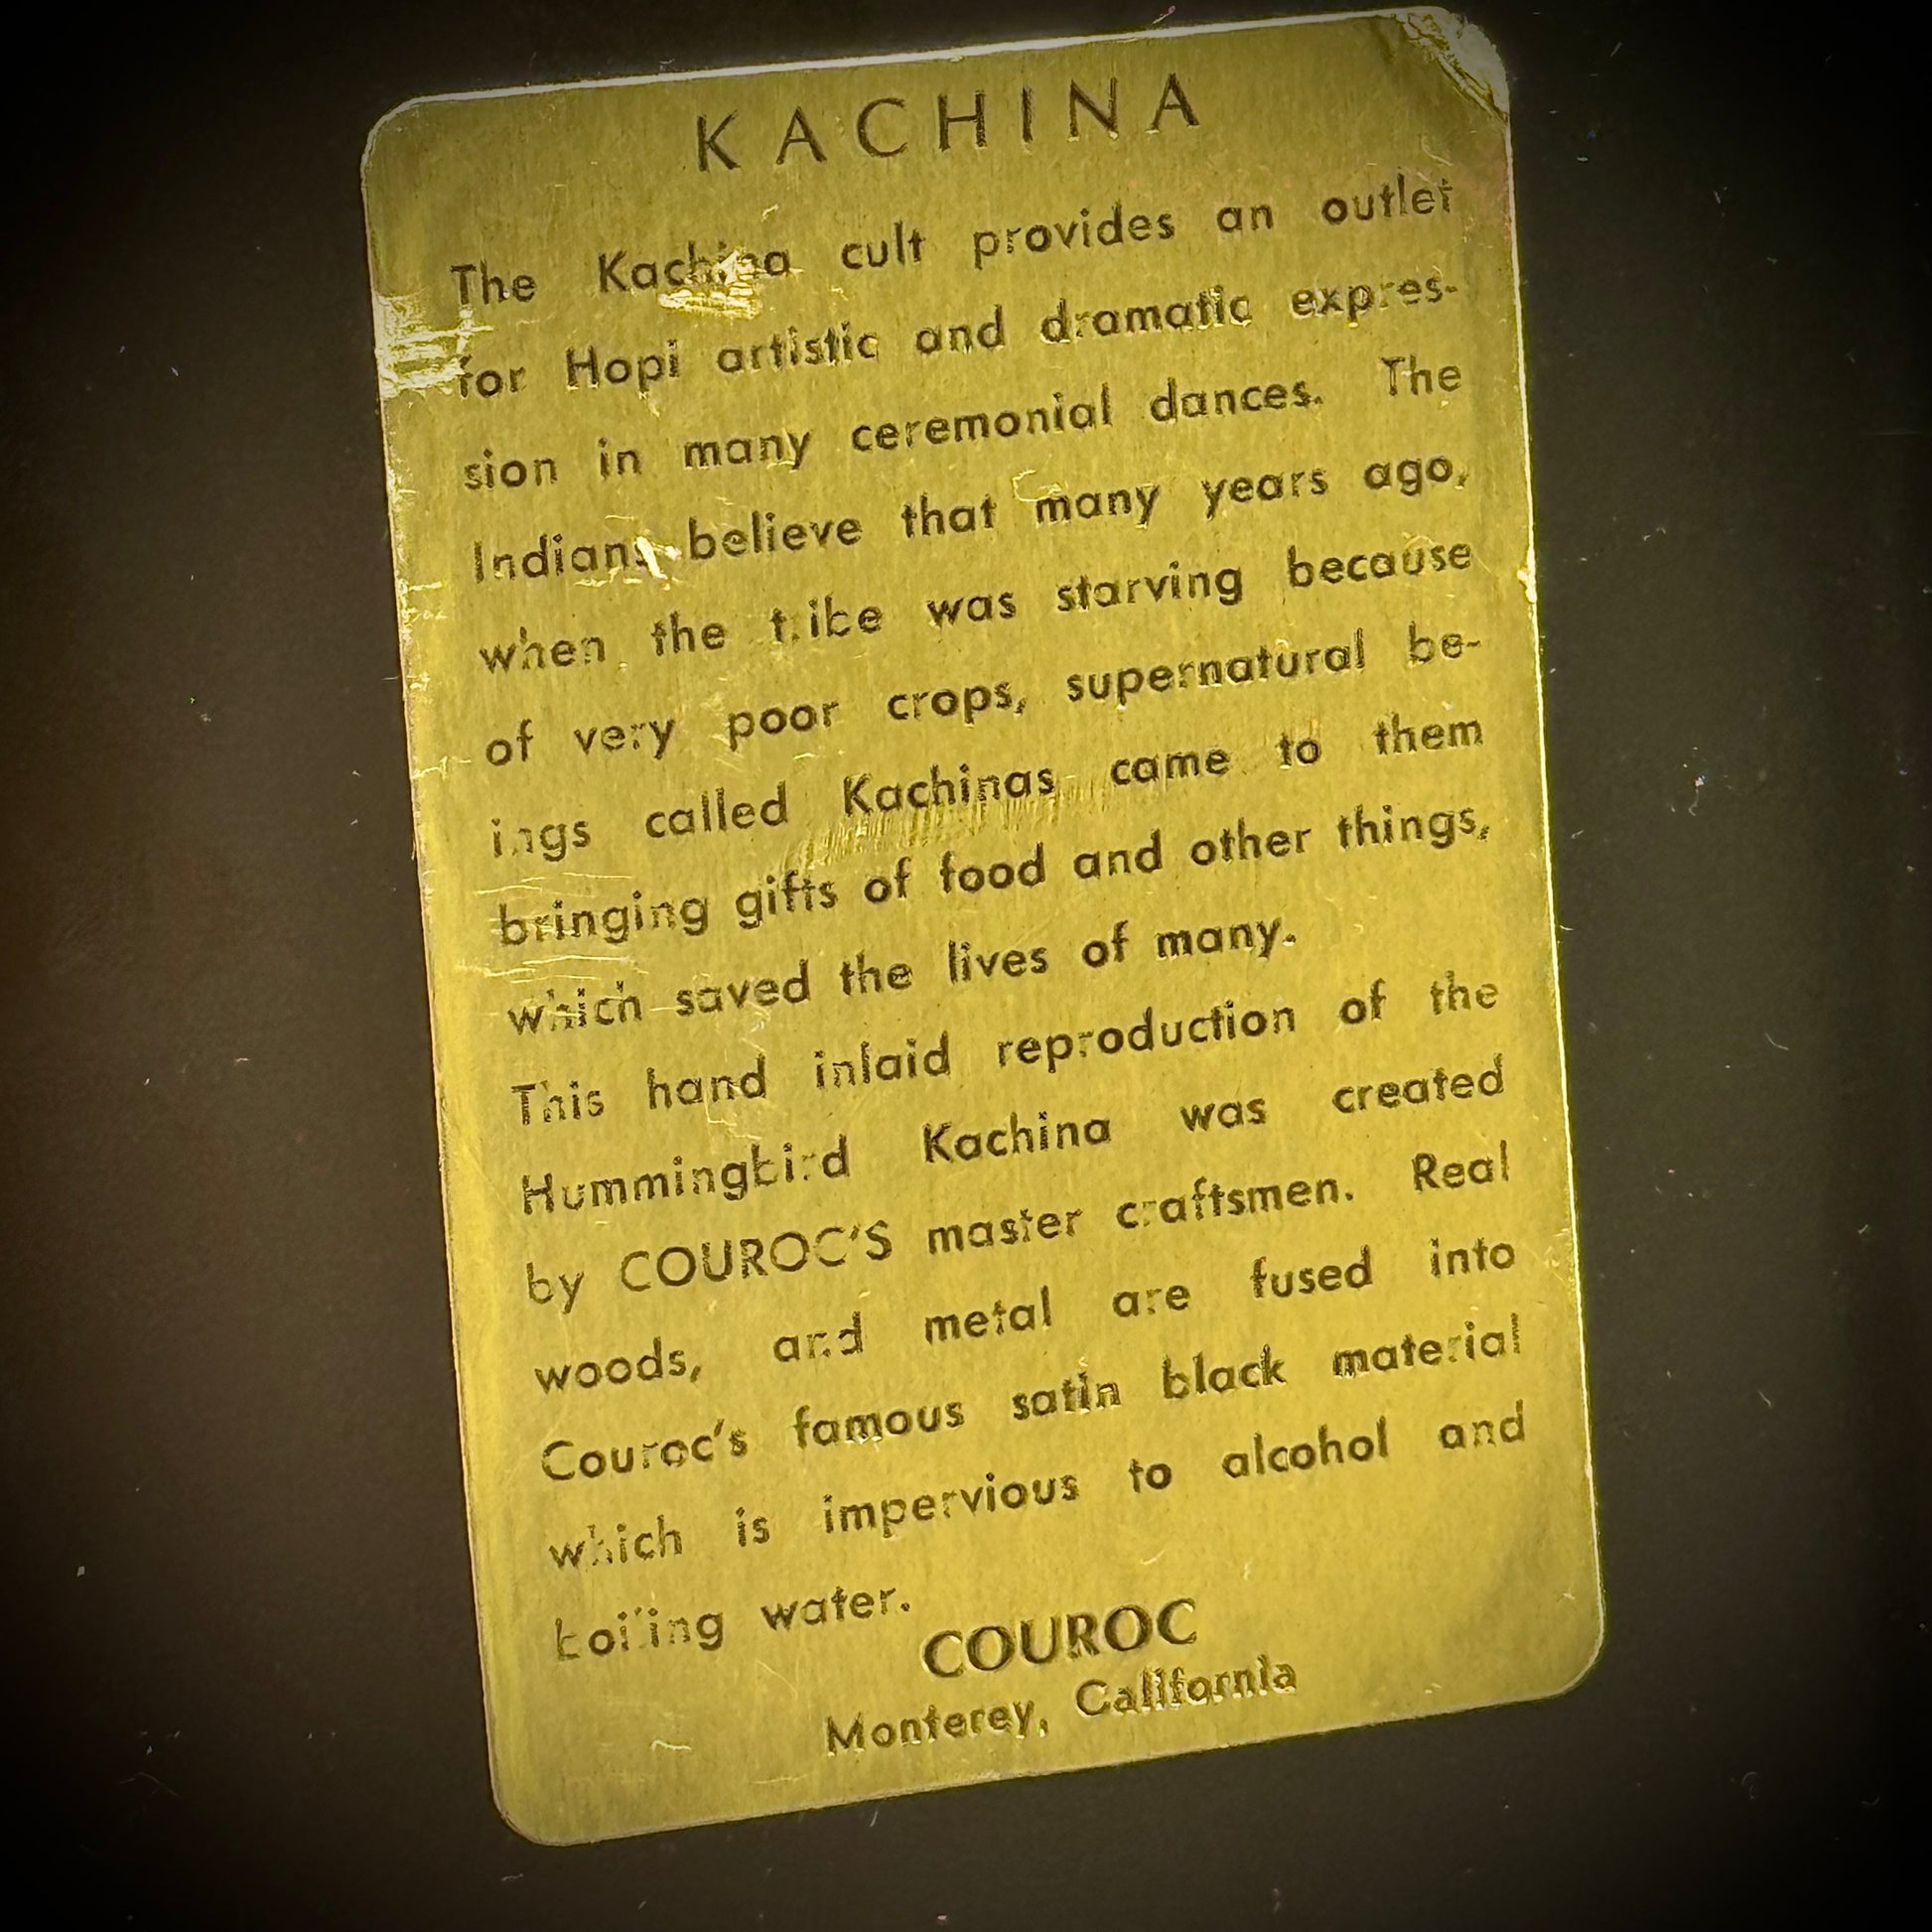 KACHINA
The Kachina cult provides an outlet
for Hopi artistic and dramatic expres-
sion in many ceremonial dances. The
Indians believe that many years ago,
when the tribe was starving because
of very poor crops, supernatural be-
ings called Kachinas came to them
bringing gifts of food and other things,
which saved the lives of many.
This hand inlaid reproduction of the
Hummingbird Kachina was created
by COUROC'S master craftsmen. Real
woods, and metal are fused into
Couroc's famous satin black material
which is impervious to alcohol and
boiling water.
COUROC
Monterey, California